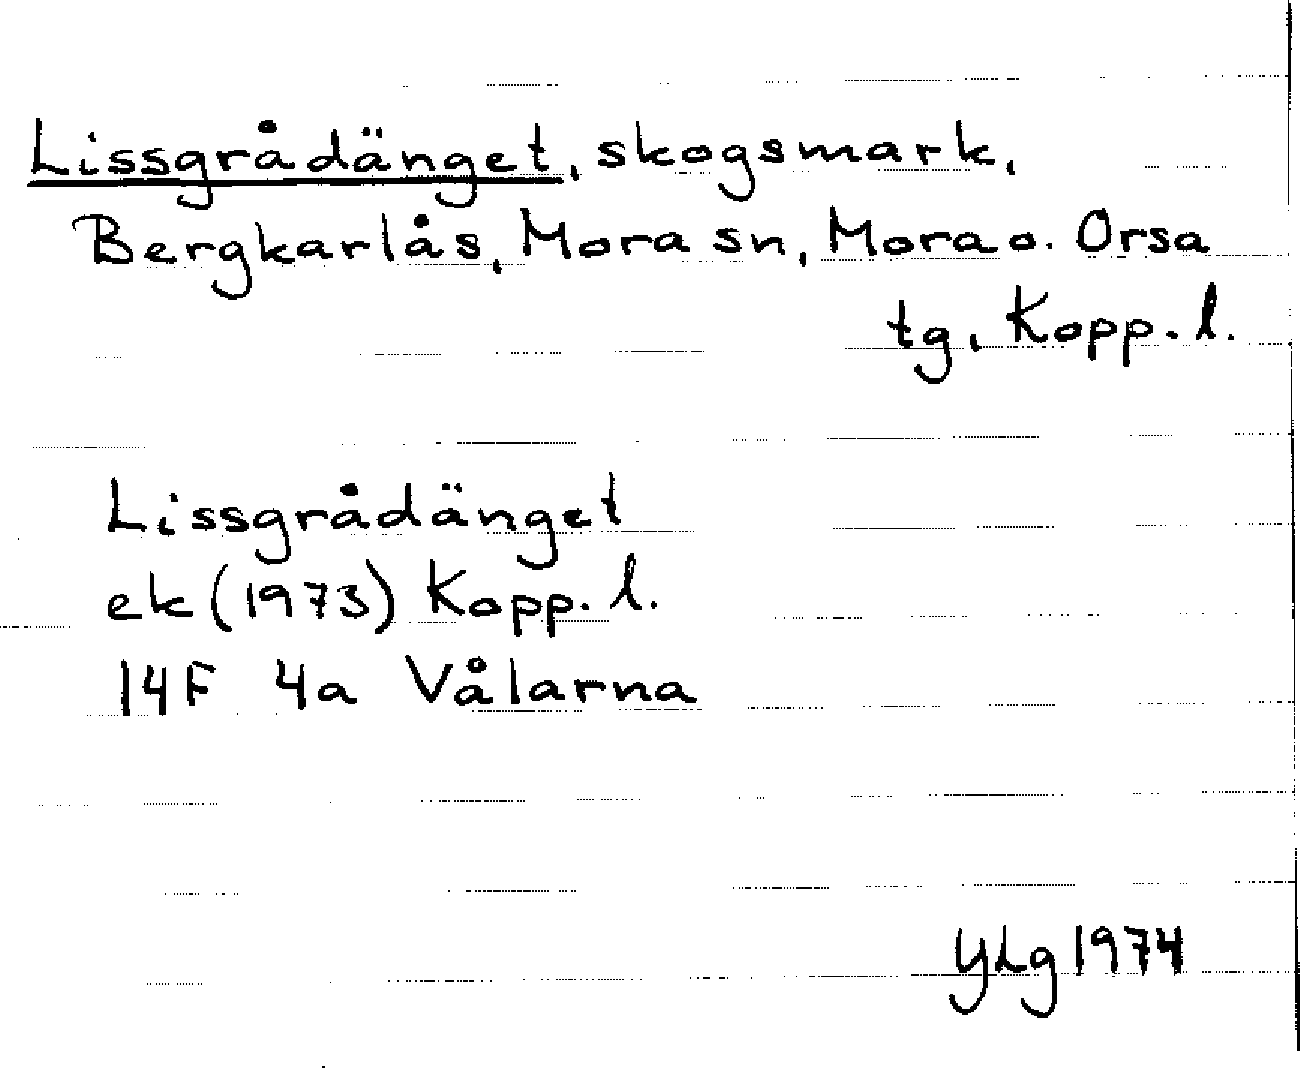 Lissgrådänget, skogsmark,
Bergkarlås, Mora sn, Mora o. Orsa
tg, Kopp. l.
Lissgrådänget
ek (1973) Kopp. l.
14F 4a Vålarna
YLg 1974